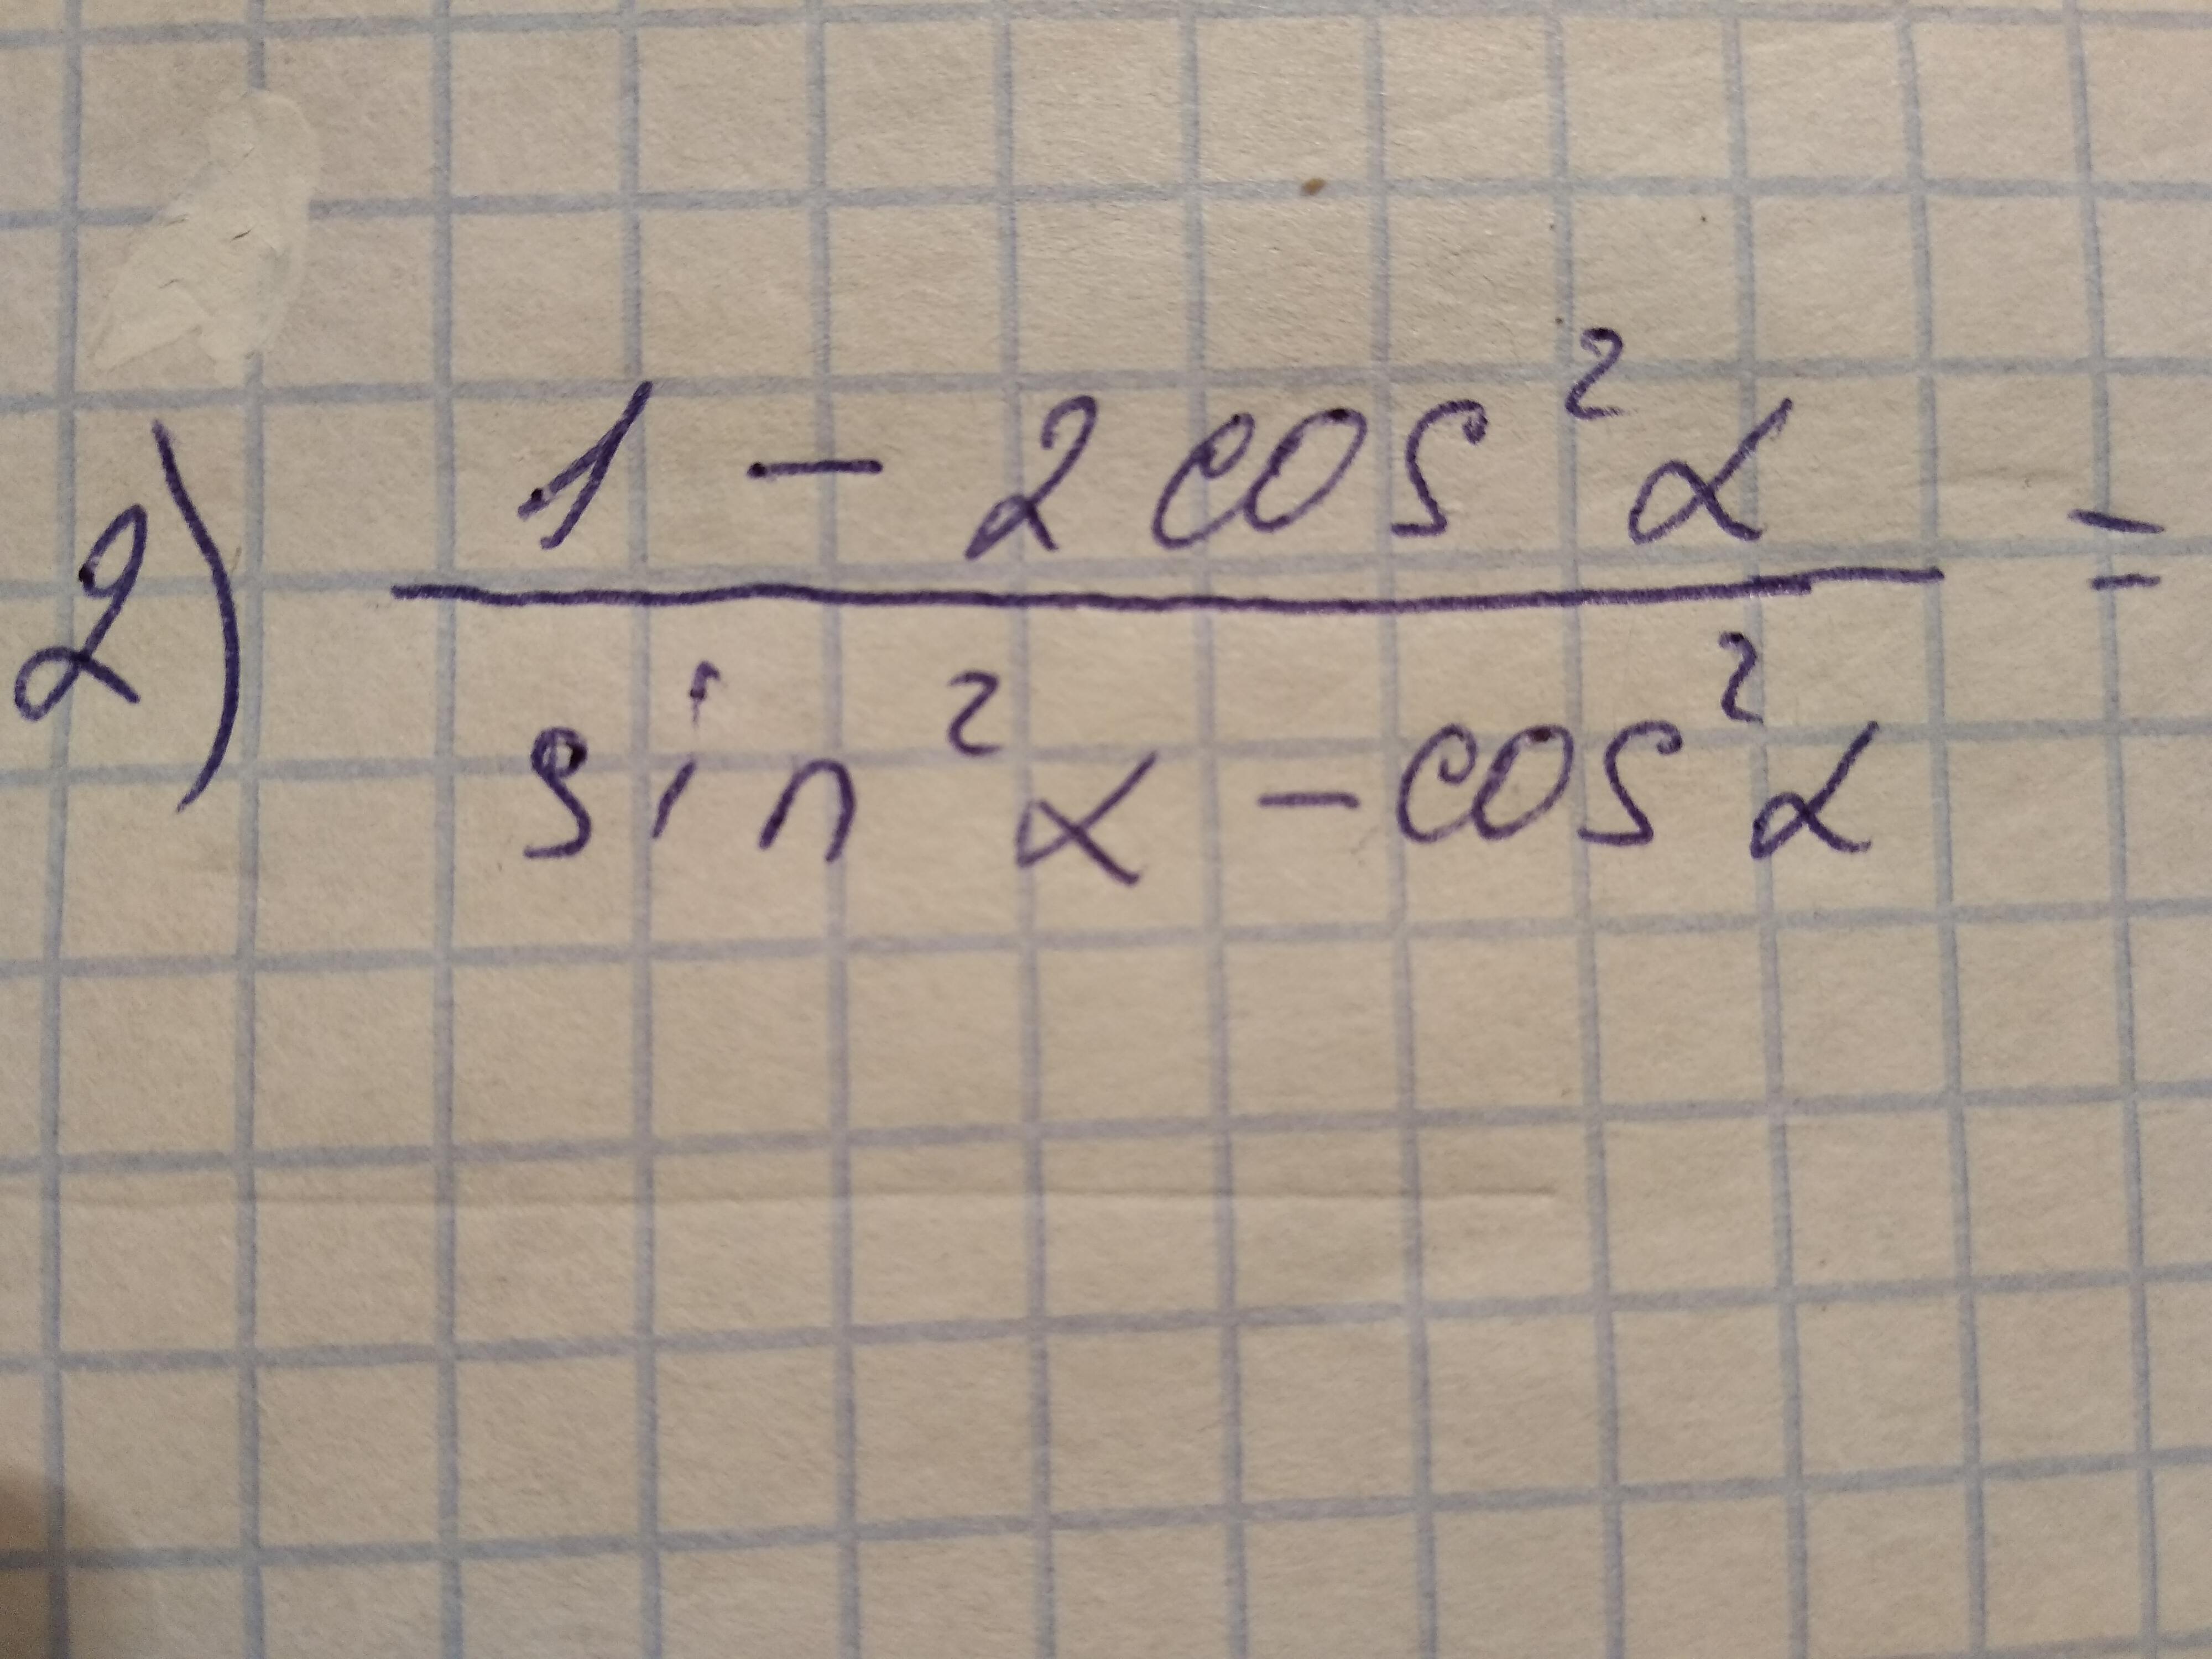 2) (1 - 2 cos²α) / (sin²α - cos²α) =